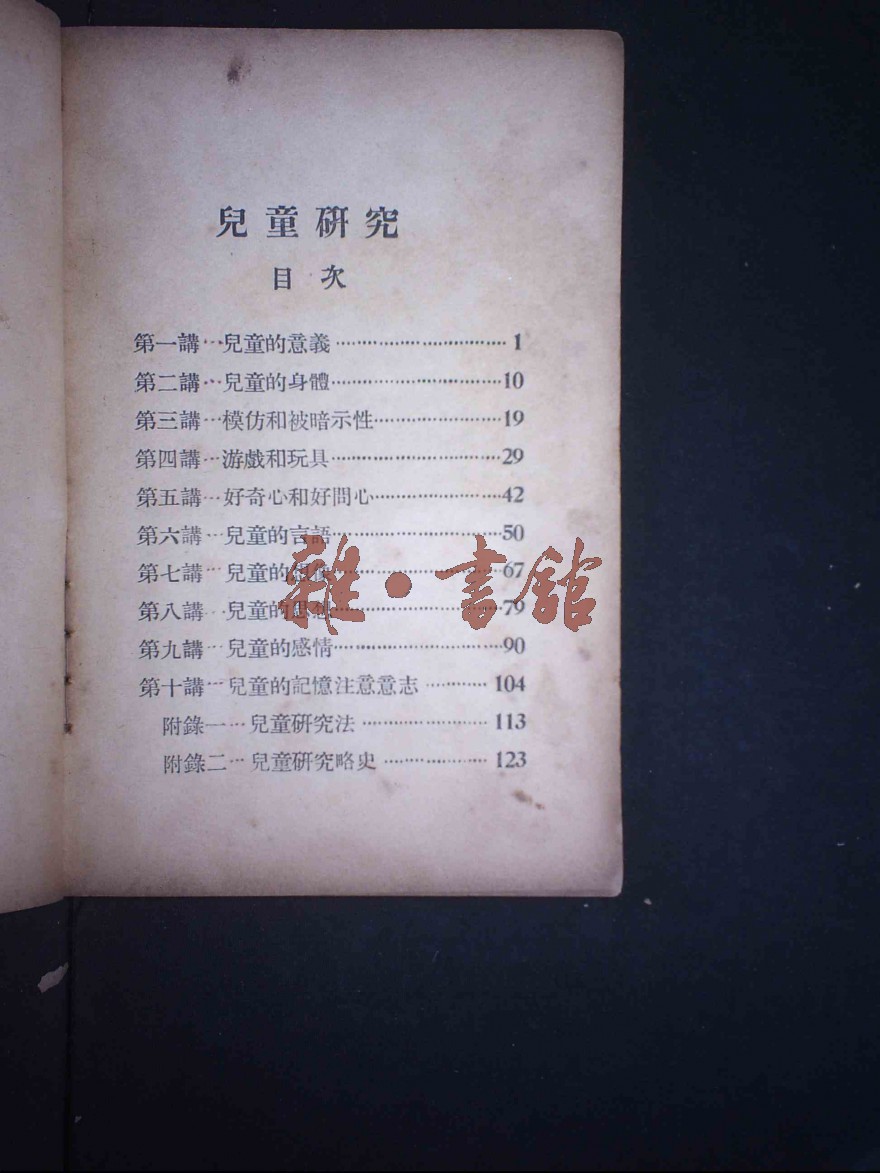 兒童研究
目次
第一講…兒童的意義……………………………1
第二講…兒童的身體……………………………10
第三講…模仿和被暗示性……………………19
第四講…游戲和玩具……………………………29
第五講…好奇心和好問心……………………42
第六講…兒童的言語……………………………50
第七講…兒童的想像……………………………67
第八講…兒童的思想……………………………79
第九講…兒童的感情……………………………90
第十講…兒童的記憶注意意志…………104
附錄一…兒童研究法……………………113
附錄二…兒童研究略史…………………123
雜·書館